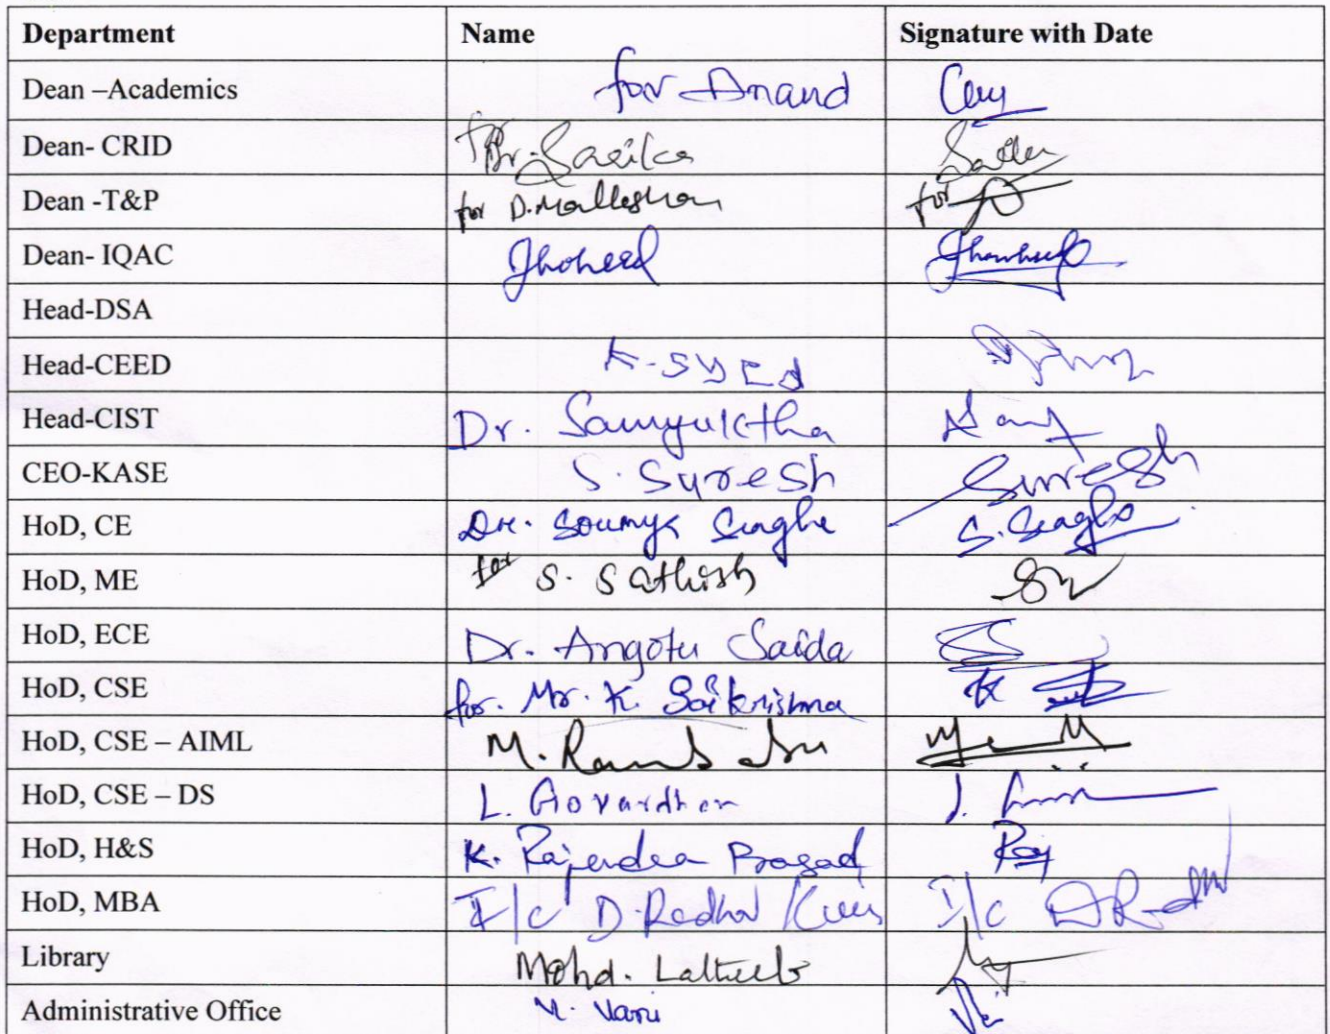 Department Name Signature with Date
Dean –Academics for Anand
Dean- CRID for Dr. Sarika
Dean -T&P for D.Mallesham for
Dean- IQAC
Head-DSA
Head-CEED K-SYEd
Head-CIST Dr. Samyuktha
CEO-KASE S. Suresh Suresh
HoD, CE Dr. Soumya
HoD, ME for S. Sathish
HoD, ECE Dr. Angotu Saida
HoD, CSE for. Mr. K. Saikrishna
HoD, CSE – AIML M.
HoD, CSE – DS L. Govardhan
HoD, H&S K. Rajendra Prasad Raj
HoD, MBA I/c D. I/c
Library Mohd.
Administrative Office